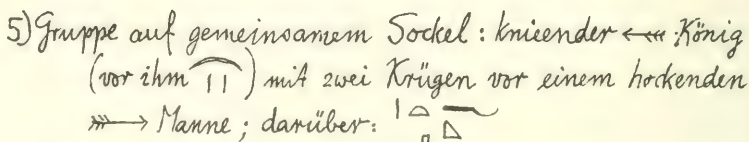 5) Gruppe auf gemeinsamem Sockel: knieender ← König
(vor ihm) mit zwei Krügen vor einem hockenden
→ Manne; darüber: